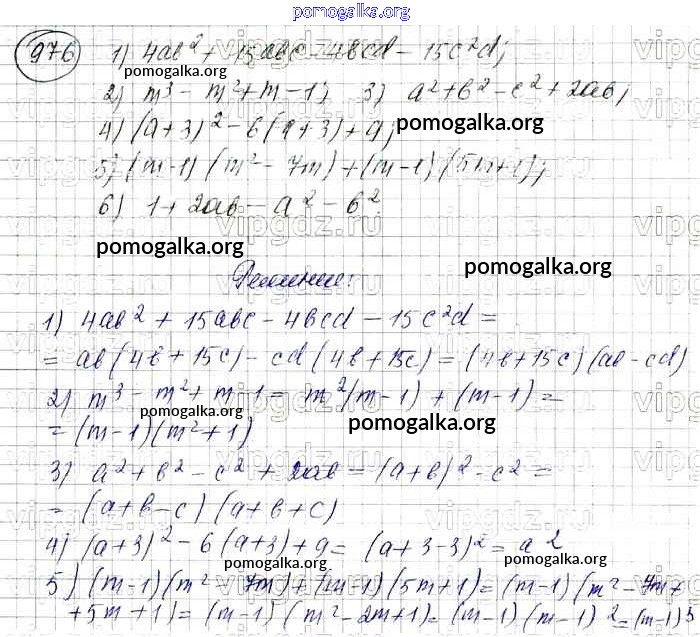 pomogalka.org
976 1) 4ab² + 15abc - 4bcd - 15c²d;
pomogalka.org
2) m³ - m² + m - 1; 3) a² + b² - c² + 2ab;
4) (a+3)² - 6(a+3) + 9; pomogalka.org
5) (m-1)(m² - 7m) + (m-1)(5m+1);
6) 1 + 2ab - a² - b².
pomogalka.org
Решение:
pomogalka.org
1) 4ab² + 15abc - 4bcd - 15c²d =
= ab(4b + 15c) - cd(4b + 15c) = (4b + 15c)(ab - cd)
2) m³ - m² + m - 1 = m²(m-1) + (m-1) =
pomogalka.org
= (m-1)(m²+1) pomogalka.org
3) a² + b² - c² + 2ab = (a+b)² - c² =
= (a+b-c)(a+b+c)
4) (a+3)² - 6(a+3) + 9 = (a+3-3)² = a²
pomogalka.org pomogalka.org
5) (m-1)(m² - 7m) + (m-1)(5m+1) = (m-1)(m² - 7m +
+ 5m + 1) = (m-1)(m² - 2m + 1) = (m-1)(m-1)² = (m-1)³